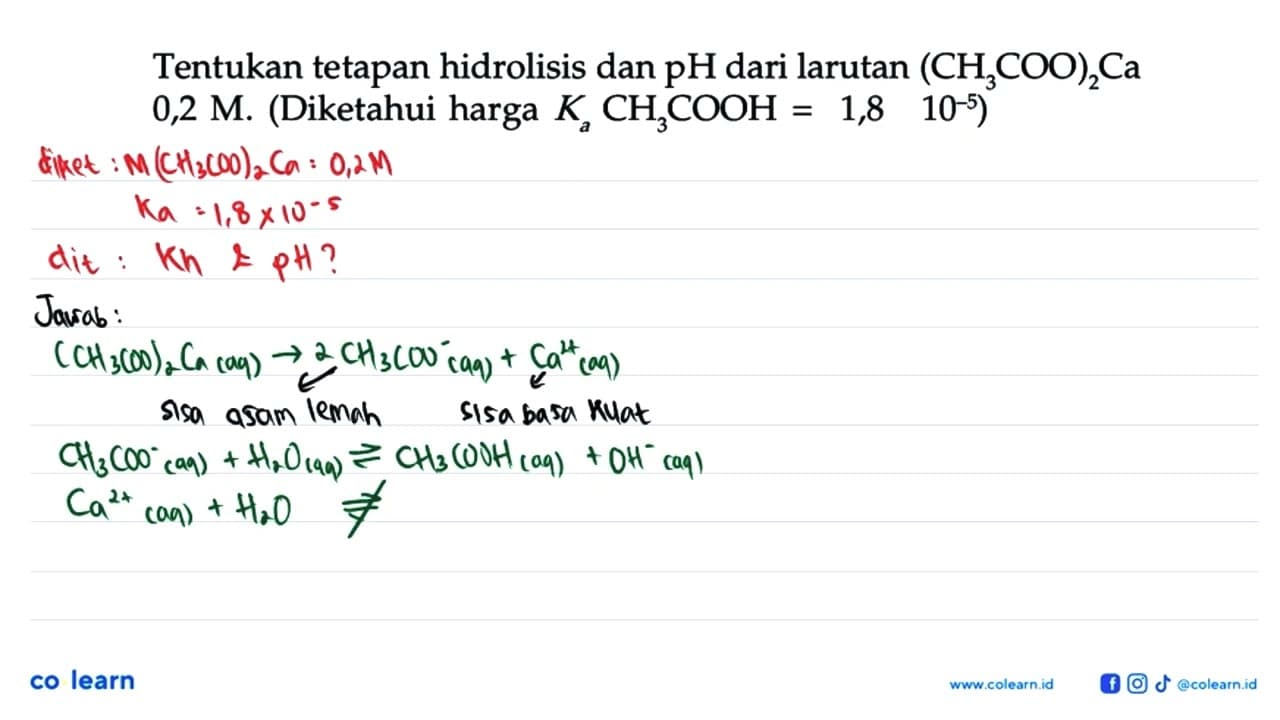 Tentukan tetapan hidrolisis dan pH dari larutan (CH₃COO)₂Ca
0,2 M. (Diketahui harga Kₐ CH₃COOH = 1,8 10⁻⁵)
diket : M (CH₃COO)₂ Ca = 0,2 M
Ka = 1,8 × 10⁻⁵
dit : Kh & pH ?
Jawab :
(CH₃COO)₂ Ca (aq) → 2 CH₃COO⁻ (aq) + Ca²⁺ (aq)
sisa asam lemah sisa basa kuat
CH₃COO⁻ (aq) + H₂O (aq) ⇌ CH₃COOH (aq) + OH⁻ (aq)
Ca²⁺ (aq) + H₂O ⇌̸
co learn
www.colearn.id @colearn.id